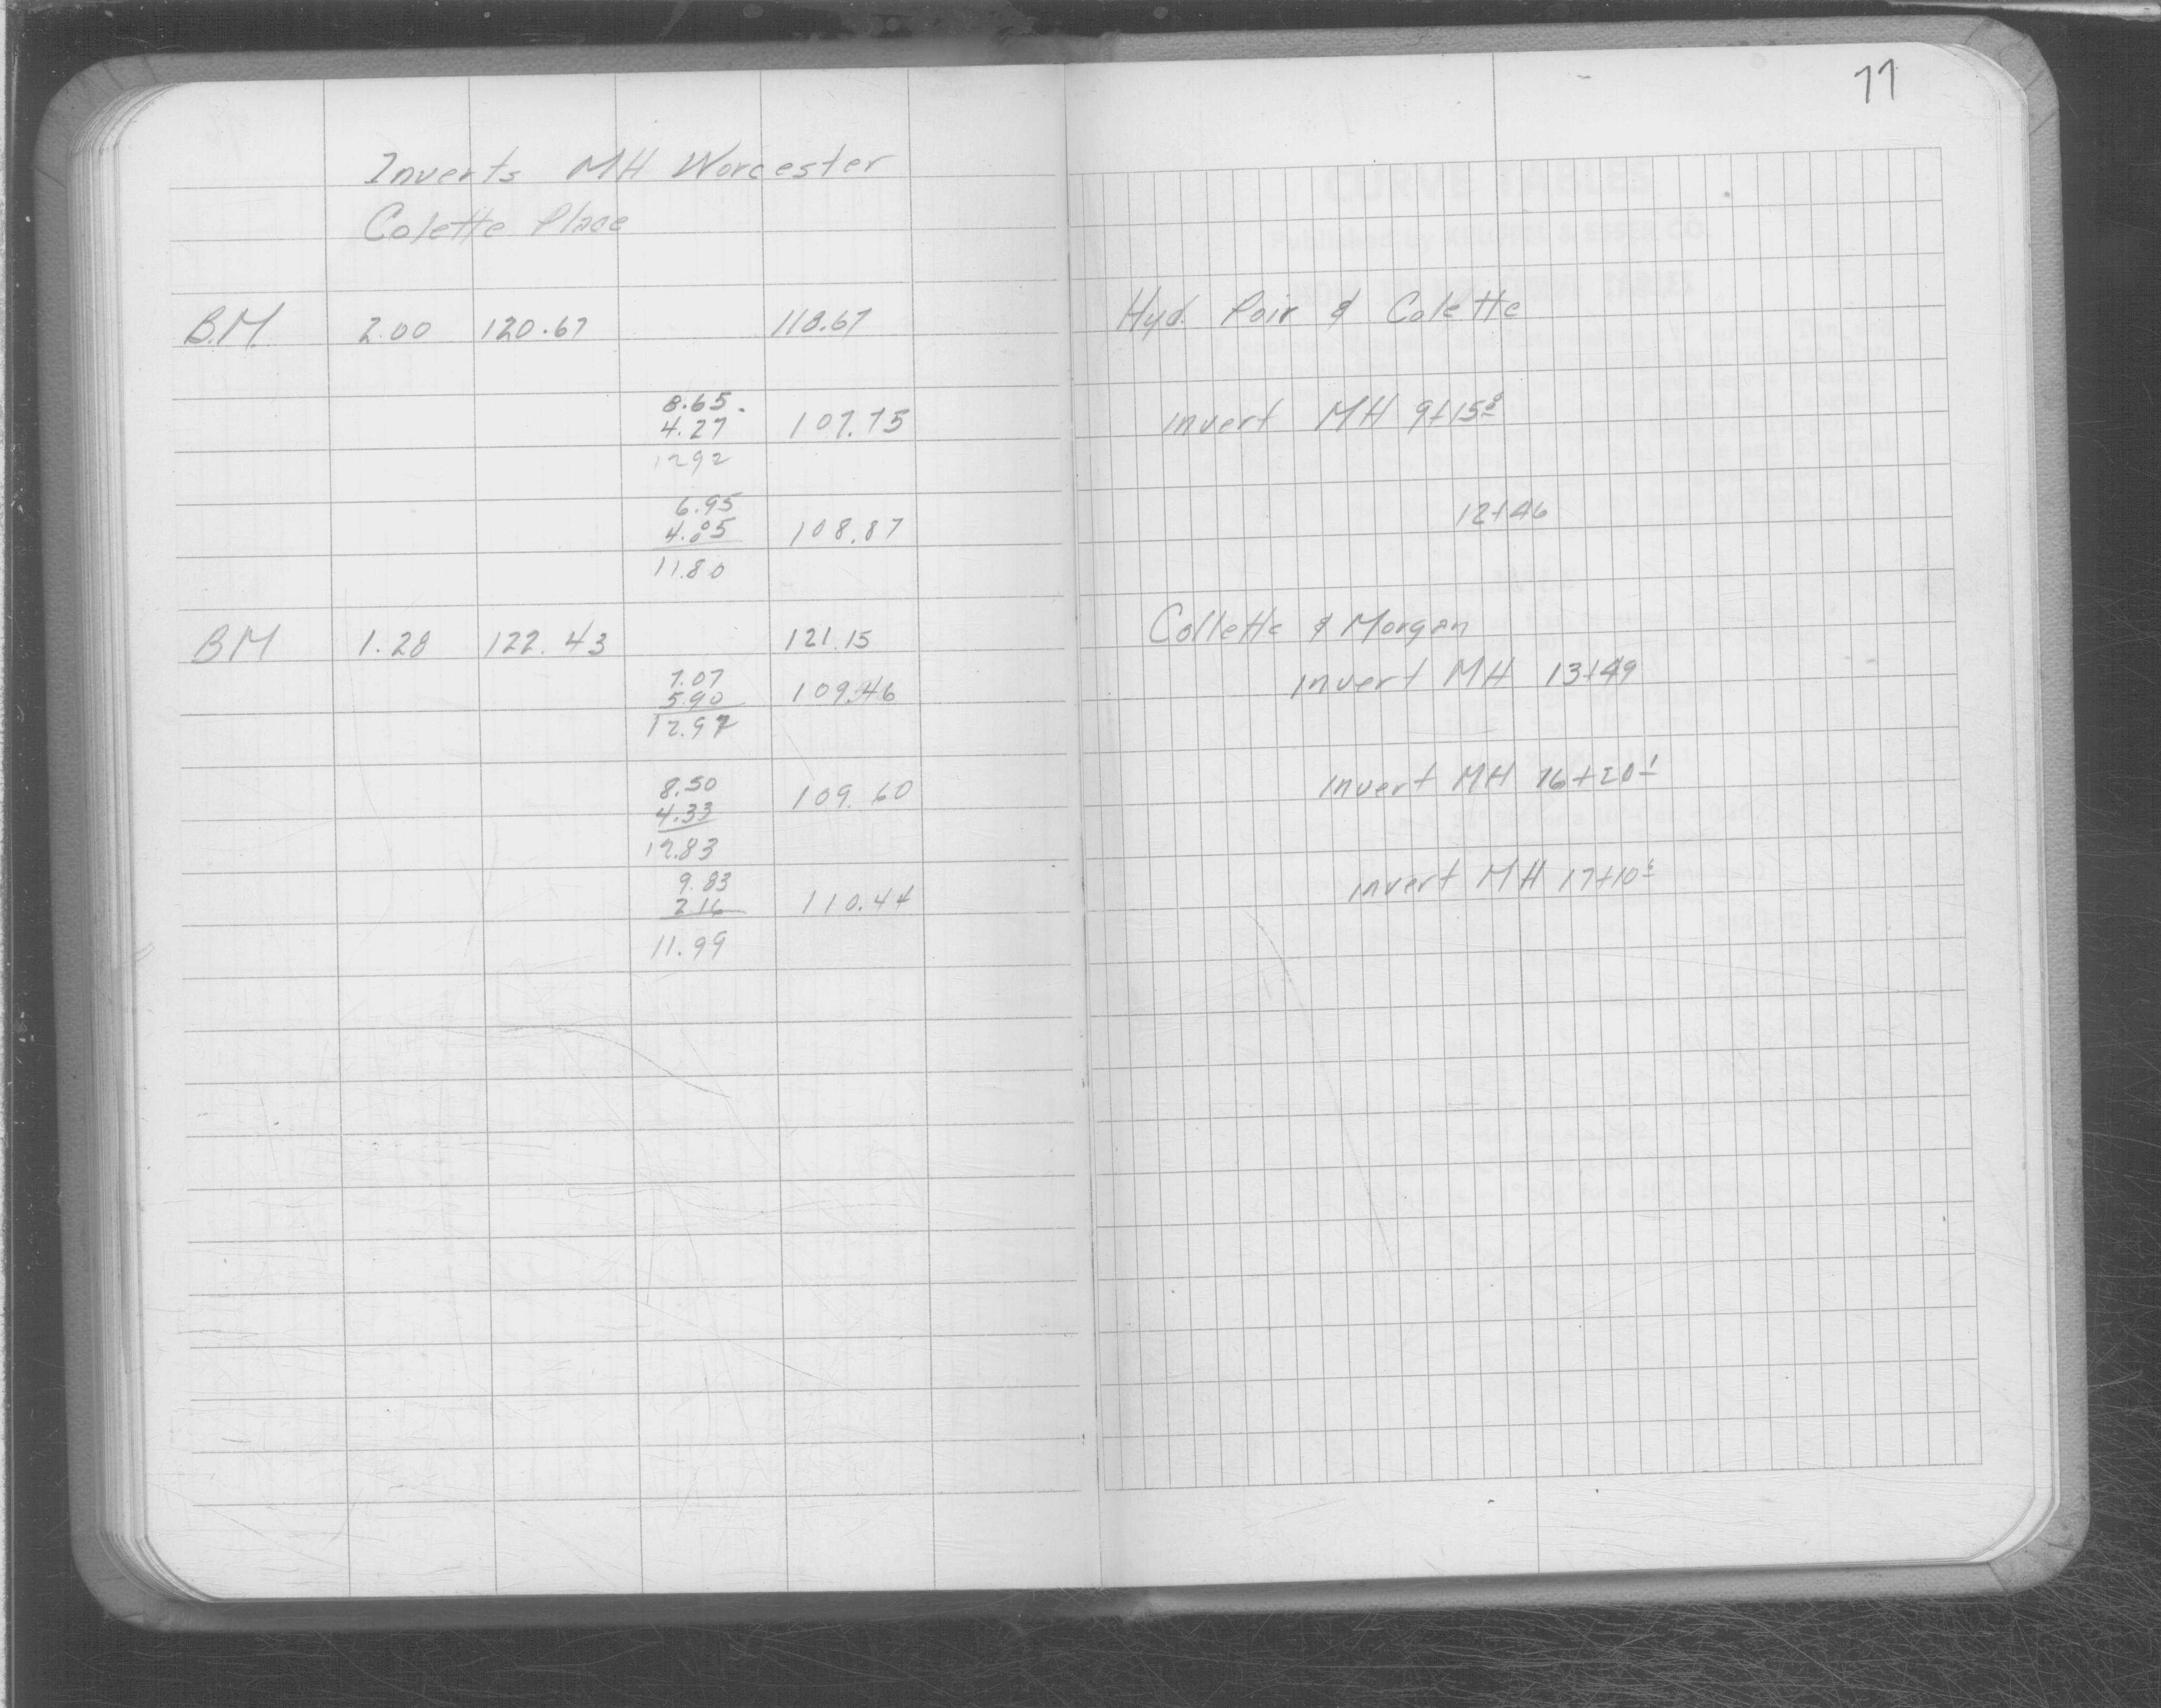 77
Inverts MH Worcester
Colette Place
B.M. 2.00 120.67 118.67 Hyd. Poir & Colette
8.65
4.27 107.75 invert MH 9+15⁸
12 92
6.95
4.85 108.87 12+46
11.80
BM 1.28 122.43 121.15 Collette & Morgan
7.07
5.90 109.46 invert MH 13+49
12.97
8.50
4.33 109.60 invert MH 16+20¹
12.83
9.83
2 16 110.44 invert MH 17+10⁶
11.99